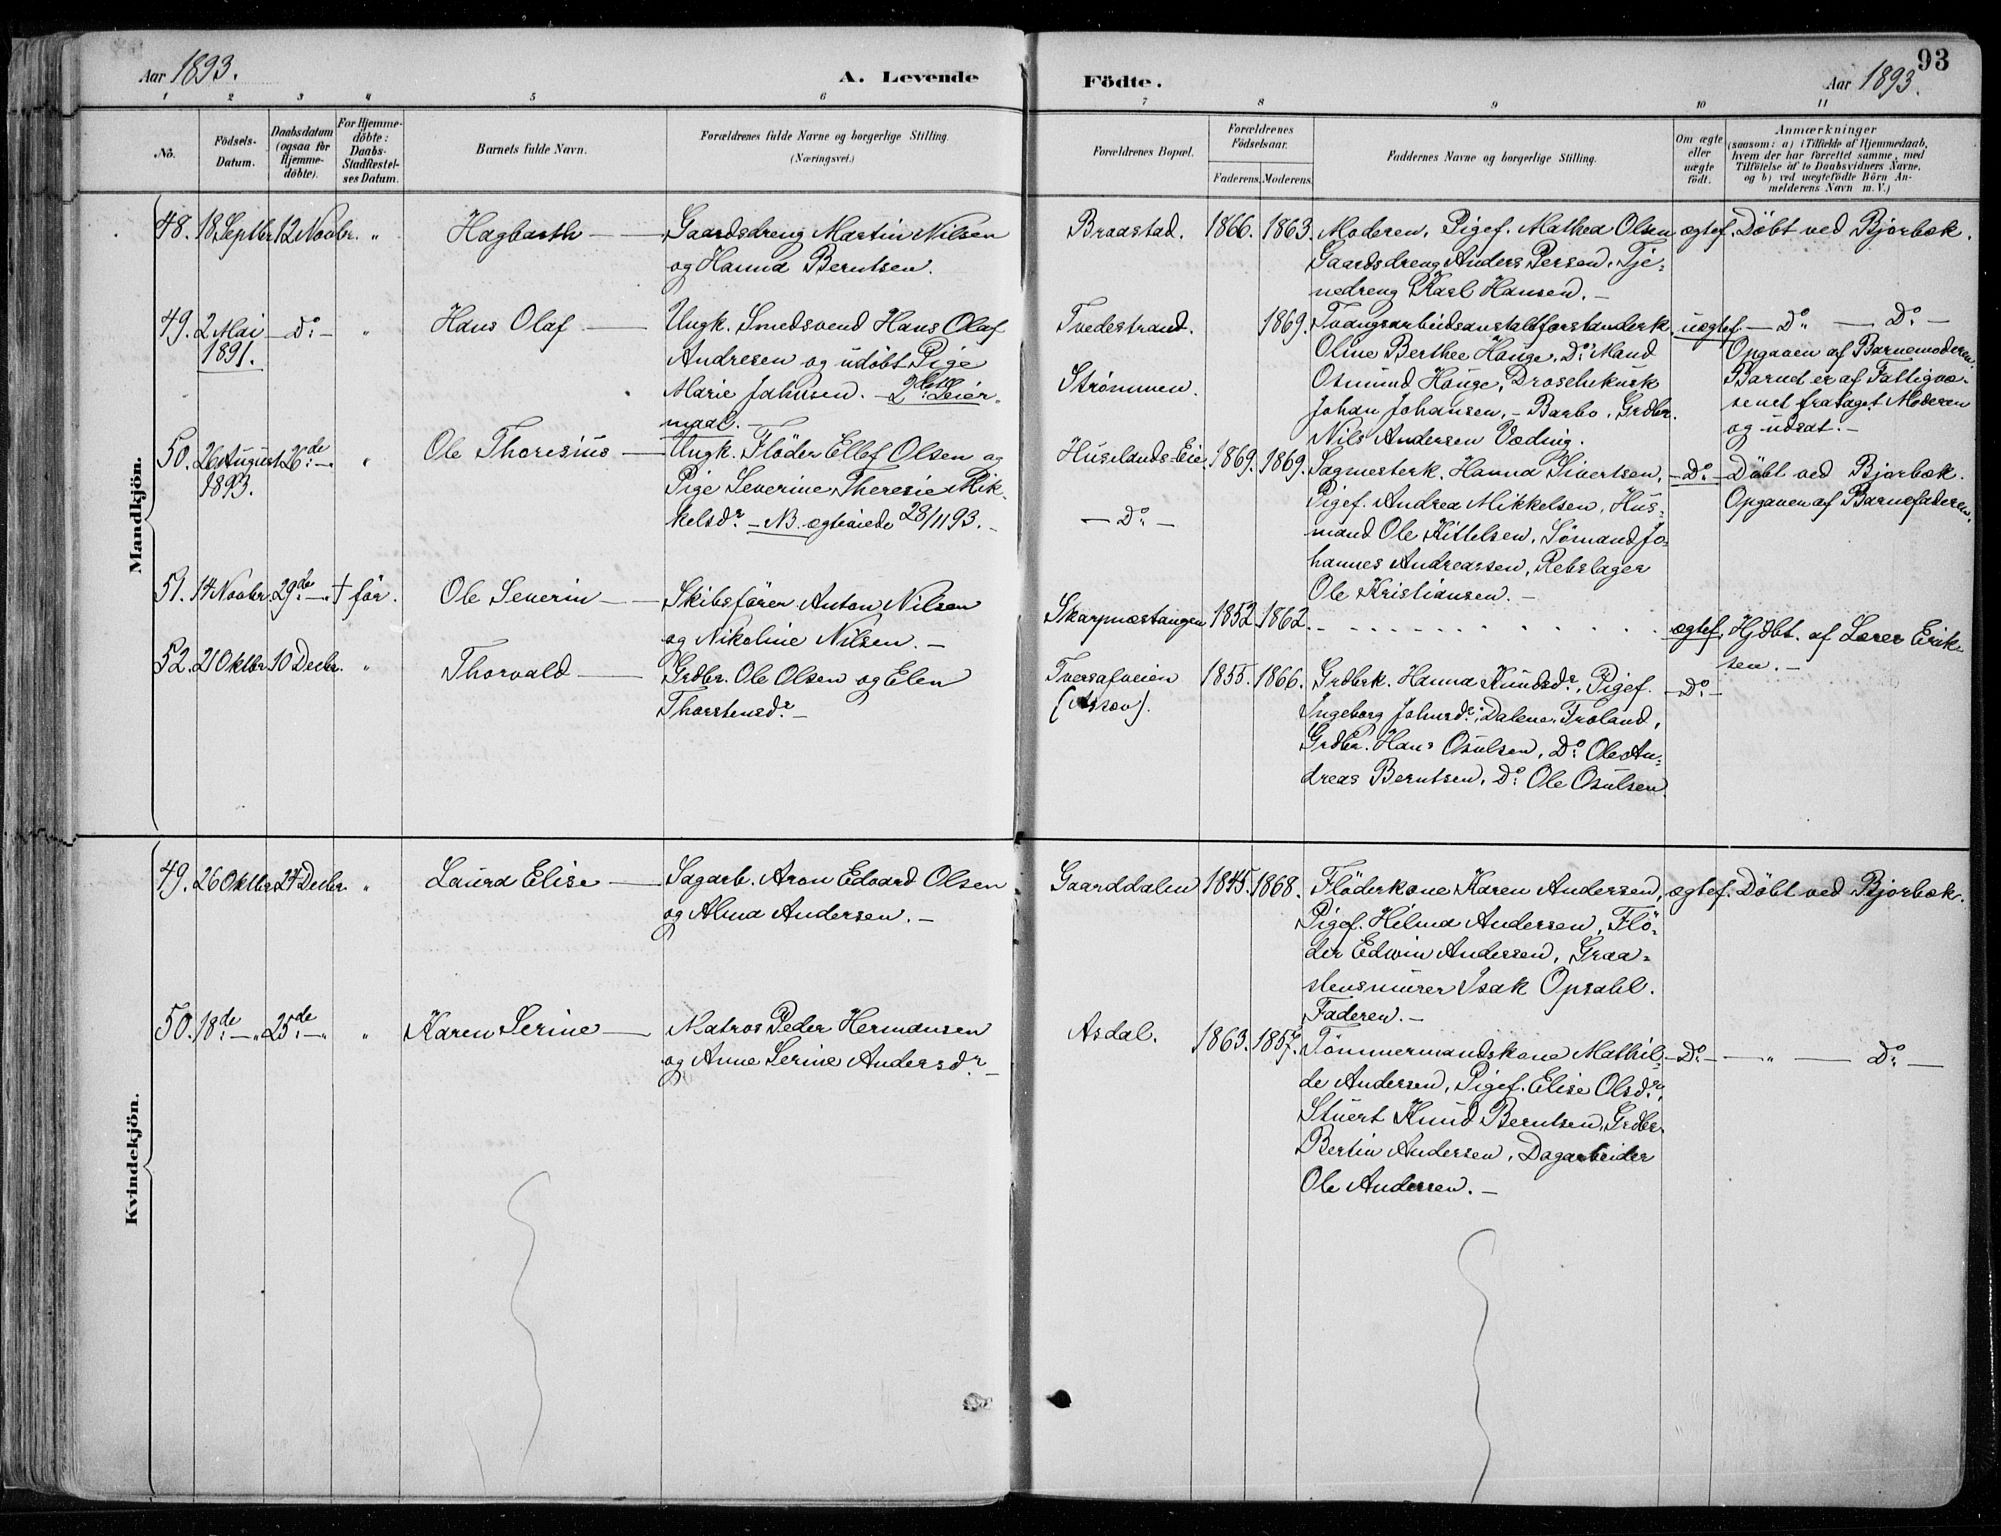 93
Aar 1893.
A. Levende
Födte.
Aar 1893.
1 2 3 4 5 6 7 8 9 10 11
No.
Födsels-
Datum.
Daabsdatum
(ogsaa for
Hjemme-
döbte).
For Hjemme-
döbte:
Daabs-
Stadfæstel-
ses Datum.
Barnets fulde Navn.
Forældrenes fulde Navne og borgerlige Stilling.
(Næringsvei.)
Forældrenes Bopæl.
Forældrenes
Födselsaar.
Faderens. Moderens.
Faddernes Navne og borgerlige Stilling.
Om ægte
eller
uægte
födt.
Anmærkninger
(saasom: a) i Tilfælde af Hjemmedaab,
hvem der har forrettet samme, med
Tilföielse af to Daabsvidners Navne,
og b) ved uægtefödte Börn An-
melderens Navn m. V.)
Mandkjön.
48. 18 Septbr. 12 Novbr. " Hagbarth —
Gaardsdreng Martin Nilsen
og Hanna Berntsen.
Braastad. 1866. 1863.
Moderen, Pigef. Mathea Olsen
Gaardsdreng Anders Persen, Tje-
nedreng Karl Hansen. —
ægtef. Döbt ved Bjorbæk.
49. 2 Mai — Do — " Hans Olaf —
1891.
Ungk. Smedsvend Hans Olaf
Andresen og udöbt Pige
Marie Jahnsen. — 2det Leier-
maal. —
Tvedestrand. 1869.
Strømmen.
Tvangsarbeidsanstaltforstanderk.
Oline Berthee Houge, Do Mand
Osmund Houge, Droschekusk
Johan Johansen, — Barbo, Grdbr.
Nils Andersen Væding.
uægtef. — Do — Do —
Opgaven af Barnemoderen.
Barnet er af Fattigvæ-
senet frataget Moderen
og udsat. —
50. 26 August 26de — " Ole Thoresius —
1893.
Ungk. Fløder Ellef Olsen og
Pige Severine Theresie Mik-
kelsdr — NB. ægteviede 28/11 93. —
Huselands-Eie 1869. 1869.
— Do —
Sagmesterk. Hanna Sivertsen,
Pigef. Andrea Mikkelsen, Hus-
mand Ole Kittelsen, Sømand Jo-
hannes Andreassen, Rebslager
Ole Kristiansen. —
— Do — Döbt ved Bjorbæk.
Opgaven af Barnefaderen.
51. 14 Novbr. 29de — † før. Ole Severin —
Skibsfører Anton Nilsen
og Nikoline Nilsen. —
Skarpnæstangen 1852. 1862.
ægtef. Hjdbt. af Lærer Erik-
sen. —
52. 21 Oktbr. 10 Decbr. " Thorvald —
Grdbr. Ole Olsen og Elen
Thorstensdr —
Tversafveien 1855. 1866.
Grdbrk. Hanna Knudsdr, Pigef.
Ingeborg Johnsdr, Dalene, Froland,
Grdbr. Hans Osulsen, Do Ole An-
dreas Berntsen, Do Ole Osulsen.
— Do —
Kvindekjön.
49. 26 Oktbr. 24 Decbr. " Laura Elise —
Sagarb. Aron Edvard Olsen
og Alma Andersen. —
Gaarddalen 1845. 1868.
Fløderkone Karen Andersen,
Pigef. Hilma Andersen, Flö-
der Edwin Andersen, Graa-
stensmurer Isak Opsahl.
Faderen. —
ægtef. Döbt ved Bjorbæk.
50. 18de — " 25de — " " Karen Serine —
Matros Peder Hermansen
og Anne Serine Andersdr —
Asdal. 1863. 1857.
Tømmermandskone Mathil-
de Andersen, Pigef. Elise Olsdr,
Stuert Knud Berntsen, Grdbr.
Bertin Andersen, Dagarbeider
Ole Andersen. —
— Do — " — Do —